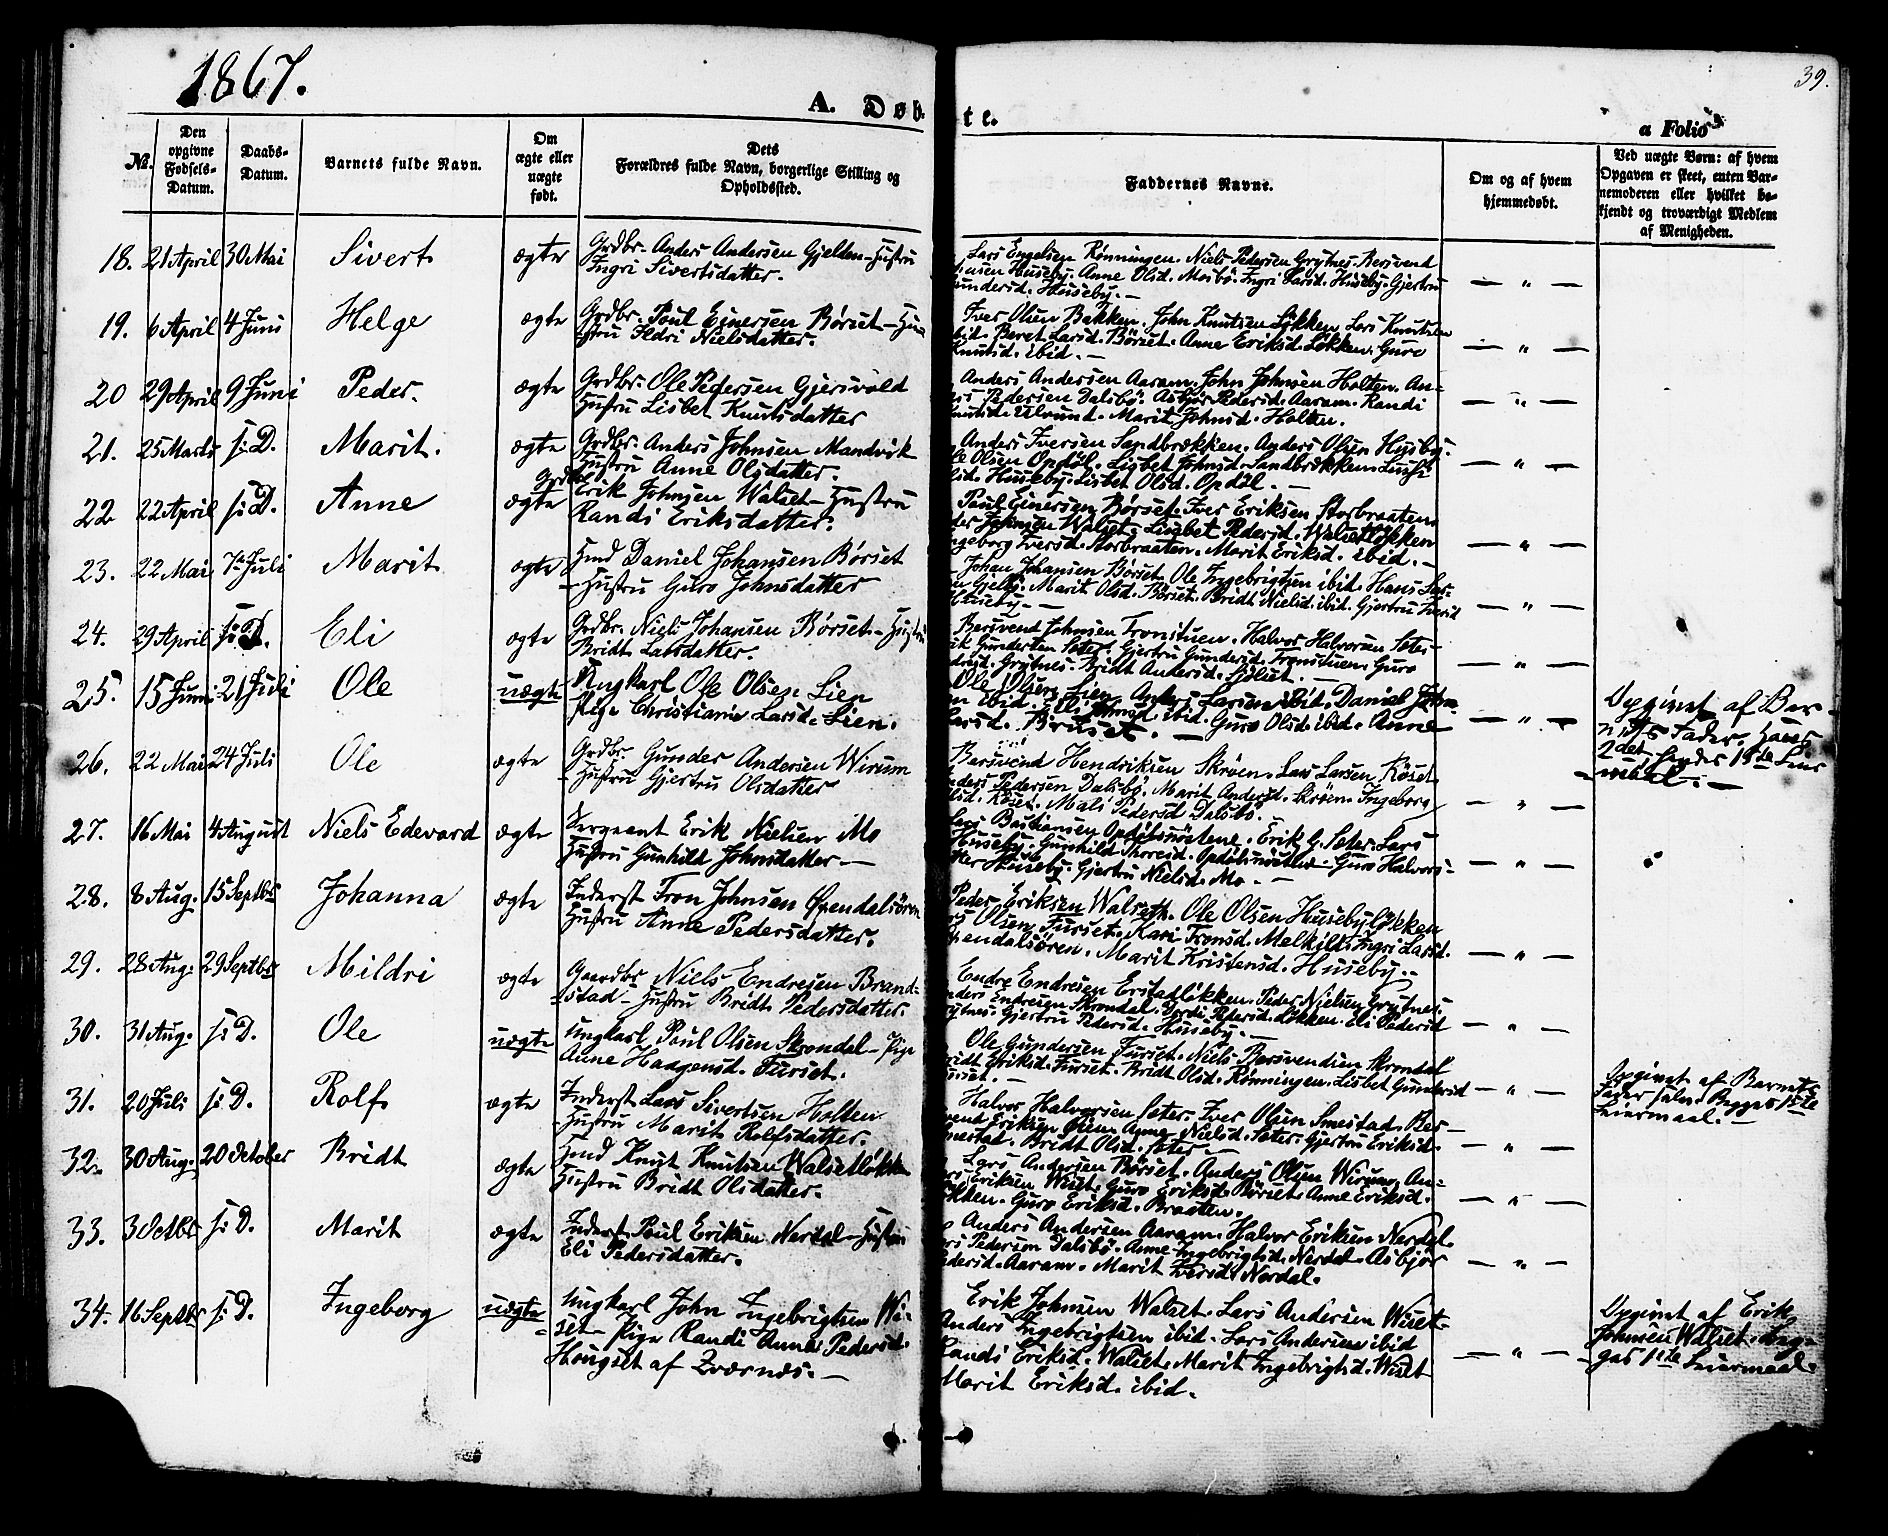 1867.
39.
A. Døb-
te.
a Folio
№.
Den opgivne Fødsels-Datum.
Daabs-Datum.
Barnets fulde Navn.
Om ægte eller uægte født.
Dets Forældres fulde Navn, borgerlige Stilling og Opholdssted.
Faddernes Navne.
Om og af hvem hjemmedøbt.
Ved uægte Børn: af hvem Opgaven er skeet, enten Barnemoderen eller hvilket bekjendt og troværdigt Medlem af Menigheden.
18. 21 April 30 Mai Sivert ægte Grdbr. Anders Andersen Gjelden - Hustru
Ingri Sivertsdatter.
Lars Engelsen Rønningen. Niels Pedersen Grytnes. Bersvend
Huseby. Anne Olsd. Mosbø. Ingri Larsd. Huseby. Gjertru
Gundersd. Huseby. —
19. 6 April 4 Juni Helge ægte Grdbr. Poul Einersen Børset - Hu-
stru Ildri Nielsdatter.
Iver Olsen Bakken. John Knutsen Løkken. Lars Knutsen
ibid. Beret Larsd. Børset. Anne Eriksd. Løkken. Guro
Knutsd. ibid. —
20 29 April 9 Juni Peder. ægte Grdbr. Ole Pedersen Gjersvold
Hustru Lisbet Knutsdatter
Anders Andersen Aaram. John Johnsen Holten. An-
Pedersen Dalsbø. Asbjør Pedersd. Aaram. Randi
Knutsd. Ulvund. Marit Johnsd. Holten.
21. 25 Marts s: D. Marit. ægte Grdbr. Anders Johnsen Mandvik
Hustru Anne Olsdatter.
Anders Iversen Sandbrækken. Anders Olsen Husby.
Ole Olsen Opdøl. Lisbet Johnsd. Sandbrækken.
Huseby. Lisbet Olsd. Opdøl. —
22 22 April s: D. Anne ægte Grdbr. Erik Johnsen Walset - Hustru
Randi Eriksdatter.
Poul Einersen Børset. Iver Eriksen Storbraaten.
Johnsen Walset. Lisbet Pedersd. Walsetløkken
Ingeborg Iversd. Storbraaten. Marit Eriksd. ibid. —
23. 22 Mai 7de Juli Marit ægte Hmd Daniel Johansen Børset
- Hustru Guro Johnsdatter
Johan Johansen Børset. Ole Ingebrigtsen ibid. Hans Lar-
Gjelbø. Marit Olsd. Børset. Bridt Nielsd. ibid. Gjertru Iversd
Huseby. —
24. 29 April s: D. Eli ægte Grdbr. Niels Johansen Børset - Hustru
Bridt Larsdatter.
Bersvend Johnsen Tronstuen. Halvor Halvorsen Sæter-
Gundersen Sæter. Gjertru Gundersd. Tronstuen. Guro
Grytnes. Bridt Andersd.
25. 15 Juni 21 Juli Ole uægte Ungkarl Ole Olsen Lien
Pige Christianne Larsd. Lien.
Ole Olsen Lien. Anders Larsen ibid. Daniel John-
ibid. Eli Johnsd ibid. Guro Olsd. ibid. Anne
Larsd. Bruset. —
Opgivet af Bar-
nets Fader. Hans
2det hendes 1ste Leier-
maal. —
26. 22 Mai 24 Juli Ole ægte Grdbr. Gunder Andersen Wirum
- Hustru Gjertru Olsdatter
Bersvend Hendriksen Skrøen. Lars Larsen Røset.
Anders Pedersen Dalsbø. Marit Andersd. Skrøen. Ingeborg
Røset. Mali Pedersd Dalsbø.
27. 16 Mai 4 August Niels Edevard ægte Sergeant Erik Nielsen Mo
Hustru Gunhild Johnsdatter —
Lars Bastiansen Opdølsnøstene. Erik G. Sæter. Lars
Huseby. Gunhild Thoresd. Opdølsnøstene. Guro Halvors-
Huseby. Gjertru Nielsd. Mo. —
28. 8 Aug. 15 Septbr Johanna ægte Inderst Tron Johnsen Øxendalsøren
Hustru Anne Pedersdatter.
Peder Eriksen Walseth. Ole Olsen Husebyløkken
Olsen Furset. Kari Tronsd. Melkild. Ingri Larsd.
Øxendalsøren. Marit Kristensd. Huseby. —
29. 28 Aug: 29 Septbr Mildri ægte Gaardbr. Niels Endresen Brand-
stad - Hustru Bridt Pedersdatter.
Endre Endresen Erstadløkken. Peder Nielsen Grytnes.
Anders Endresen Skrondal. Gjertru Pedersd. Løkken. Eli Pedersd
Grytnes. Gjertru Pedersd. Huseby. —
30. 31 Aug. s: D. Ole uægte Ungkarl Poul Olsen Skrondal - Pige
Anne Haagensd. Furset.
Ole Gundersen Furset. Niels Bersvendsen Skrondal
Bridt Eriksd. Furset. Bridt Olsd. Rønningen. Lisbet Gundersd
Furset. —
Opgivet af Barnets
Fader selv. Begges 1ste
Leiermaal. —
31. 20 Juli s: D. Rolf ægte Inderst Lars Sivertsen Holten
- Hustru Marit Rolfsdatter.
Halvor Halvorsen Sæter. Iver Olsen Smestad. Ber-
svend Eriksen Øien. Anne Nielsd. Sæter. Gjertru Eriksd.
Smestad. Bridt Olsd. Sæter. —
32. 30 Aug. 20 October Bridt ægte Hmd Knut Knutsen Walsetløkken
Hustru Bridt Olsdatter.
Lars Andersen Børset. Anders Olsen Wirum. An-
ders Eriksen Wiset. Guro Eriksd. Børset. Anne Eriksd.
Løkken. Guro Eriksd. Braaten.
33. 3 Octbr s: D. Marit ægte Inderst Poul Eriksen Nerdal - Hustru
Eli Pedersdatter.
Anders Andersen Aaram. Halvor Eriksen Nerdal.
Lars Pedersen Dalsbø. Anne Ingebrigtsd. Nerdal. Asbjør
Pedersd. Aaram. Marit Iversd. Nordal.
34. 16 Septbr s: D. Ingeborg uægte Ungkarl John Ingebrigtsen Wi-
set - Pige Randi Anne Pedersd.
Hougset af Qværnæs. —
Erik Johnsen Walset. Lars Andersen Wiset.
Anders Ingebrigtsen ibid. Lars Andersen ibid
Randi Eriksd. Walset. Marit Ingebrigtsd. Wiset
Marit Eriksd. ibid.
Opgivet af Erik
Johnsen Walset. Beg-
ges 1ste Leiermaal.